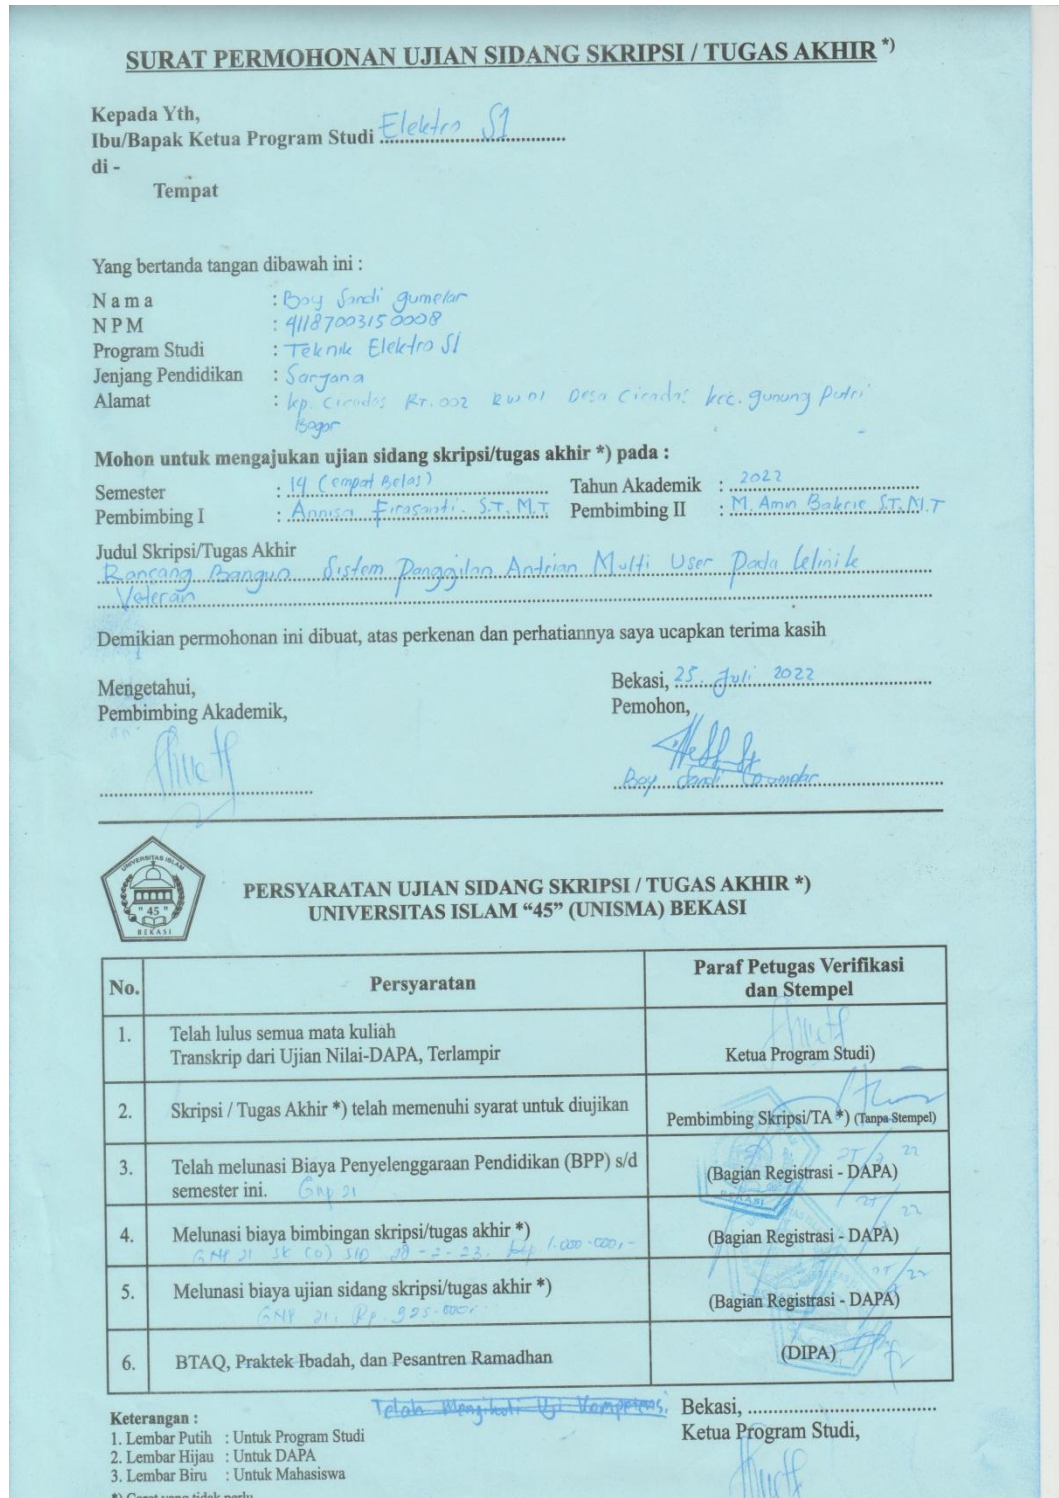 SURAT PERMOHONAN UJIAN SIDANG SKRIPSI / TUGAS AKHIR *)
Kepada Yth,
Ibu/Bapak Ketua Program Studi Elektro S1
di -
Tempat
Yang bertanda tangan dibawah ini :
N a m a : Boy Sandi gumelar
N P M : 41187003150008
Program Studi : Teknik Elektro S1
Jenjang Pendidikan : Sarjana
Alamat : kp. Cicadas RT.002 RW 01 Desa Cicadas kec. gunung Putri
Bogor
Mohon untuk mengajukan ujian sidang skripsi/tugas akhir *) pada :
Semester : 14 (empat Belas) Tahun Akademik : 2022
Pembimbing I : Annisa Firasanti. S.T, M.T Pembimbing II : M. Amin Bakrie S.T, M.T
Judul Skripsi/Tugas Akhir
Rancang Bangun Sistem Panggilan Antrian Multi User Pada Klinik
Veteran
Demikian permohonan ini dibuat, atas perkenan dan perhatiannya saya ucapkan terima kasih
Mengetahui, Bekasi, 25 Juli 2022
Pembimbing Akademik, Pemohon,
Boy Sandi Gumelar
UNIVERSITAS ISLAM
"45"
BEKASI
PERSYARATAN UJIAN SIDANG SKRIPSI / TUGAS AKHIR *)
UNIVERSITAS ISLAM “45” (UNISMA) BEKASI
No. Persyaratan Paraf Petugas Verifikasi
dan Stempel
1. Telah lulus semua mata kuliah
Transkrip dari Ujian Nilai-DAPA, Terlampir Ketua Program Studi)
2. Skripsi / Tugas Akhir *) telah memenuhi syarat untuk diujikan Pembimbing Skripsi/TA *) (Tanpa Stempel)
3. Telah melunasi Biaya Penyelenggaraan Pendidikan (BPP) s/d (Bagian Registrasi - DAPA)
semester ini. Gnp 21
4. Melunasi biaya bimbingan skripsi/tugas akhir *) (Bagian Registrasi - DAPA)
GNP 21 SK (0) S/D 28-2-23, Rp 1.000.000,-
5. Melunasi biaya ujian sidang skripsi/tugas akhir *) (Bagian Registrasi - DAPA)
GNP 21. Rp. 925.000,-
6. BTAQ, Praktek Ibadah, dan Pesantren Ramadhan (DIPA)
Telah Mengikuti Uji Kompetensi
Keterangan : Bekasi,
1. Lembar Putih : Untuk Program Studi Ketua Program Studi,
2. Lembar Hijau : Untuk DAPA
3. Lembar Biru : Untuk Mahasiswa